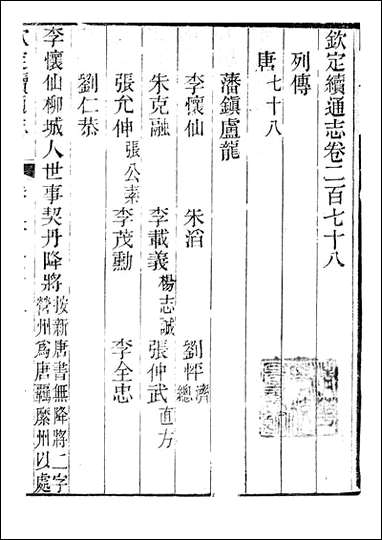 欽定續通志卷二百七十八
列傳
唐七十八
藩鎮盧龍
李懷仙 朱滔 劉怦濟總
朱克融 李載義楊志誠 張仲武直方
張允伸張公素 李茂勳 李全忠
劉仁恭
李懷仙柳城人世事契丹降將按新唐書無降將二字營州為唐羈縻州以處